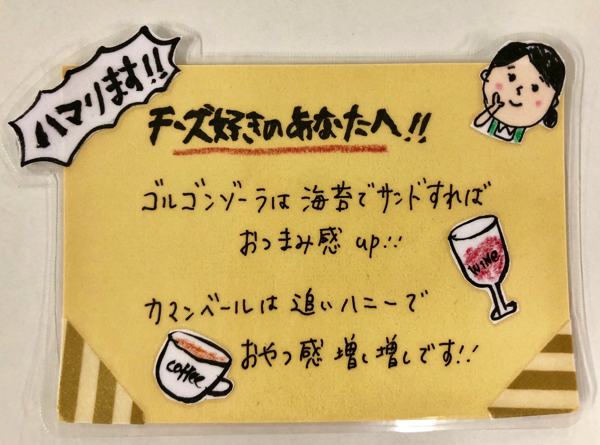 ハマります!!
チーズ好きのあなたへ!!
ゴルゴンゾーラは海苔でサンドすれば
おつまみ感 up!!
WINE
カマンベールは追いハニーで
おやつ感 増し増しです!!
coffee